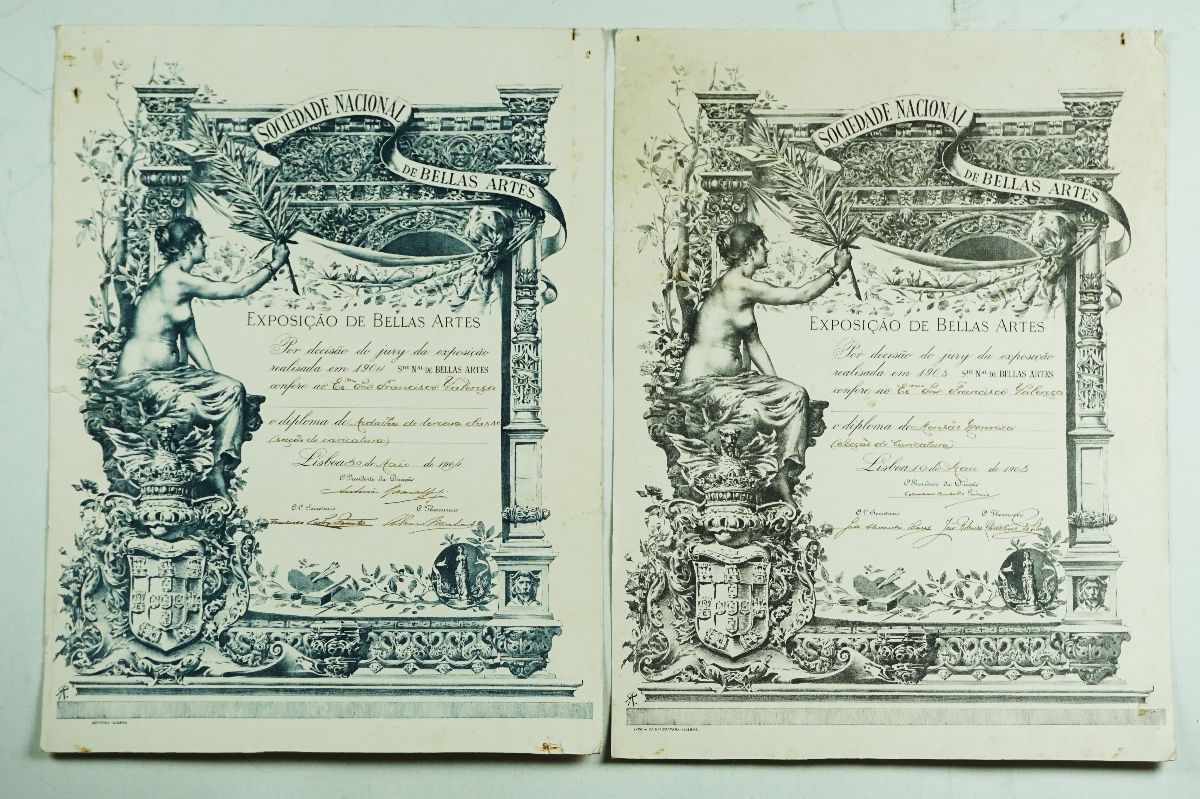 SOCIEDADE NACIONAL
DE BELLAS ARTES
EXPOSIÇÃO DE BELLAS ARTES
Por decisão do jury da exposição
realisada em 1904 SDE NAL DE BELLAS ARTES
confere ao Exmo Snr Francisco Valença
o diploma de Medalha de terceira classe
(secção de caricatura)
Lisboa 30 de Maio de 1904
O Presidente da Direcção
O 1º Secretario O Thesoureiro
EDITORA - LISBOA
SOCIEDADE NACIONAL
DE BELLAS ARTES
EXPOSIÇÃO DE BELLAS ARTES
Por decisão do jury da exposição
realisada em 1903 SDE NAL DE BELLAS ARTES
confere ao Exmo Snr Francisco Valença
o diploma de Menção Honrosa
(Secção de Caricatura)
Lisboa 10 de Maio de 1903
O Presidente da Direcção
O 1º Secretario O Thesoureiro
EDITORA - LISBOA